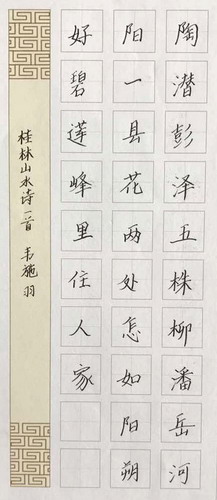 陶潜彭泽五株柳潘岳河
阳一县花两处怎如阳朔
好碧莲峰里住人家
桂林山水诗一首 韦施羽